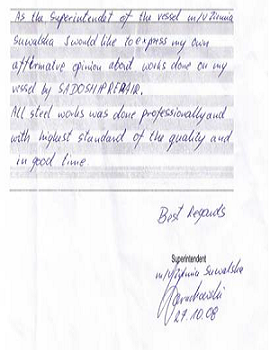 As the Superintendet of the vessel m/v Ziemia
Suwalska I would like to express my own
affirmative opinion about works done on my
vessel by SADOSHIPREPAIR.
All steel works was done professionally and
with highest standard of the quality and
in good time
Best Regards
Superintendent
m/v Ziemia Suwalska
27.10.08